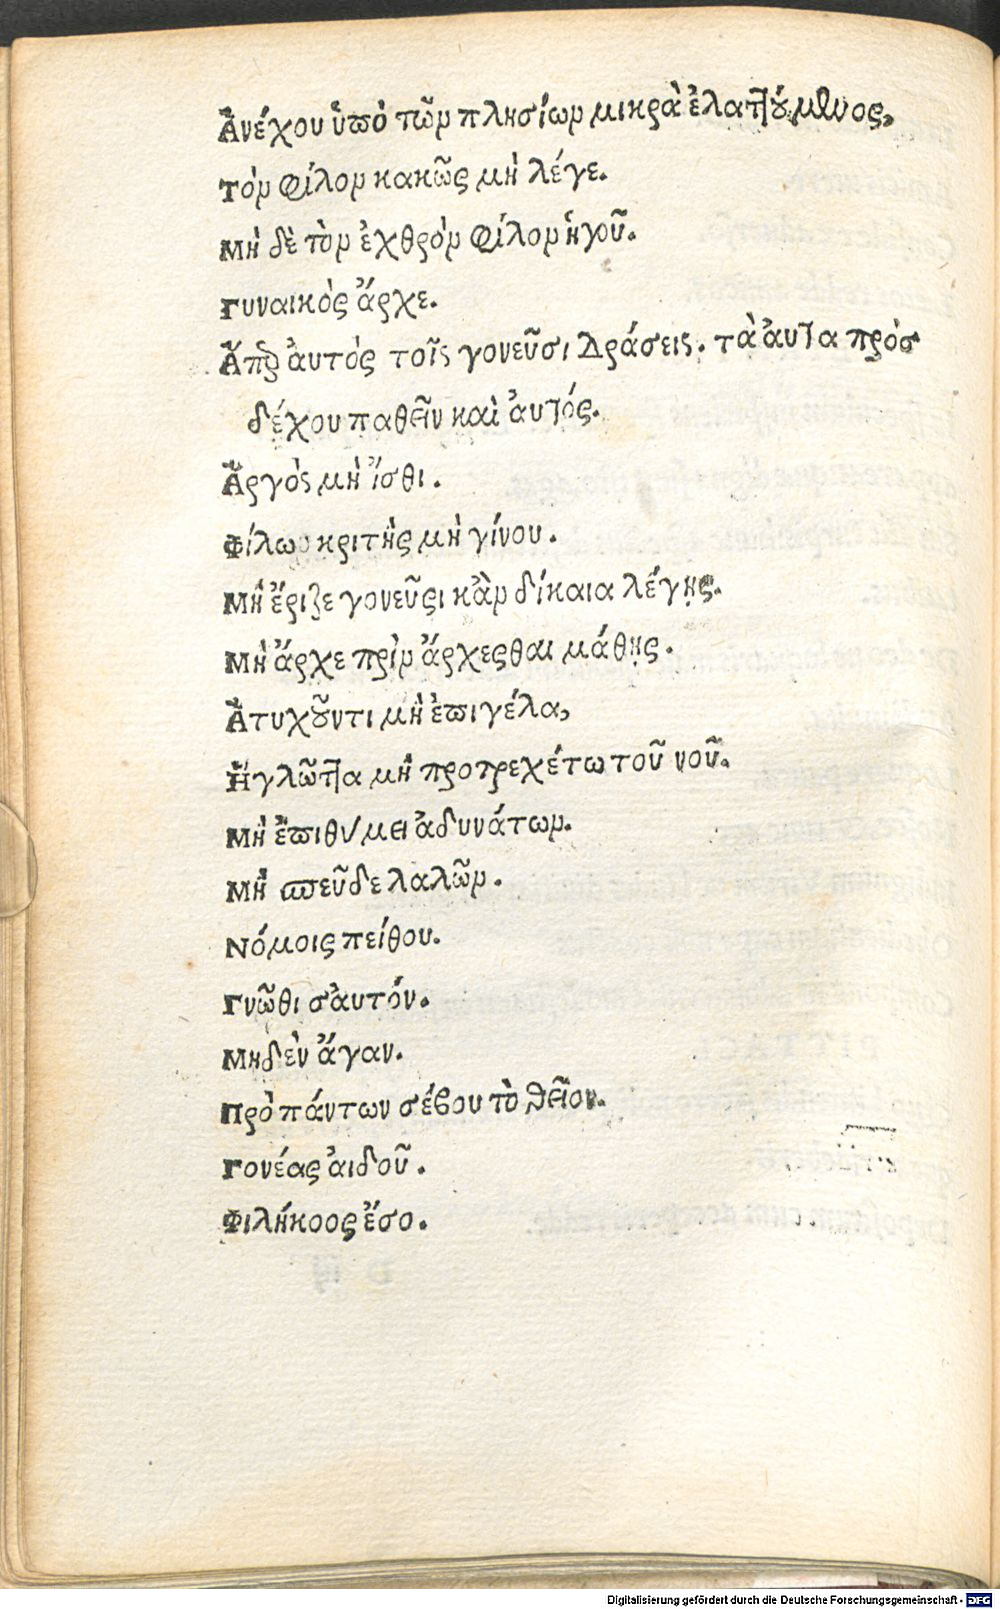 Ἀνέχου ὑπὸ τῶν πλησίων μικρὰ ἐλαττούμενος,
Τὸν φίλον κακῶς μὴ λέγε.
Μὴ δὲ τὸν ἐχθρὸν φίλον ἡγοῦ.
Γυναικὸς ἄρχε.
Ἅπερ ἀυτὸς τοῖς γονεῦσι δράσεις. τὰ ἀυτὰ πρὸσ
δέχου παθεῖν καὶ ἀυτός.
Ἄργὸς μὴ ἴσθι.
Φίλων κριτὴς μὴ γίνου.
Μὴ ἔριζε γονεῦσι κἂν δίκαια λέγῃς.
Μὴ ἄρχε πρὶν ἄρχεσθαι μάθῃς.
Ἀτυχοῦντι μὴ ἐπιγέλα,
Ἡ γλῶττα μὴ προτρεχέτω τοῦ νοῦ.
Μὴ ἐπιθύμει ἀδυνάτων.
Μὴ σπεῦδε λαλῶν.
Νόμοις πείθου.
Γνῶθι σἀυτόν.
Μηδὲν ἄγαν.
Πρὸ πάντων σέβου τὸ θεῖον.
Γονέας ἀιδοῦ.
Φιλήκοος ἔσο.
Digitalisierung gefördert durch die Deutsche Forschungsgemeinschaft - DFG